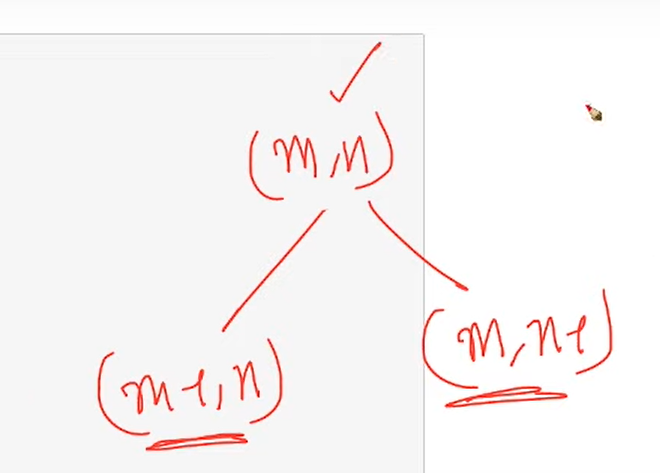 (m,n)
(m-1,n)
(m,n-1)